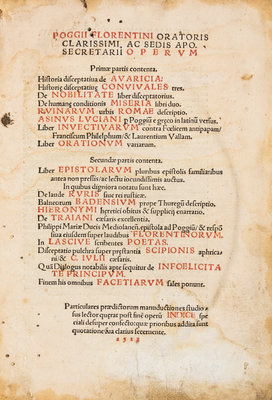 POGGII FLORENTINI ORATORIS
CLARISSIMI, AC SEDIS APO.
SECRETARII OPERVM
Primæ partis contenta.
Historia disceptatiua de AVARICIA:
Historiæ disceptatiuæ CONVIVALES tres.
De NOBILITATE liber disceptatorius.
De humanę conditionis MISERIA libri duo.
RVINARVM vrbis ROMAE descriptio
ASINVS LVCIANI p Poggiū e gręco in latinū versus.
Liber INVECTIVARVM contra Fœlicem antipapam/
Franciscum Philelphum & Laurentium Vallam.
Liber ORATIONVM variarum.
Secundæ partis contenta.
Liber EPISTOLARVM pluribus epistolis familiaribus
antea non pressis/ac lectu iocundissimis auctus.
In quibus digniora notatu sunt hæc.
De laude RVRIS suæ rei rusticæ.
Balneorum BADENSIVM prope Thuregū descriptio.
HIERONYMI hæretici obitus & supplicij enarratio.
De TRAIANI cæsaris excellentia.
Philippi Mariæ Ducis Mediolaneñ. epistola ad Poggiū/ & respō
siua eiusdem super laudibus FLORENTINORVM.
In LASCIVE scribentes POETAS.
Disceptatio pulchra super prestantia SCIPIONIS aphrica
ni/& C. IVLII cæsaris.
Quā Dialogus notabilis apte sequitur de INFOELICITA
TE PRINCIPVM.
Finem his omnibus FACETIARVM sales ponunt.
Particulares prædictorum manuductiones studio-
sus lector quærat post finē operū INDICE spe
ciali desuper confecto: quæ prioribus addita sunt
quotatione sua clarius secernente.
1513